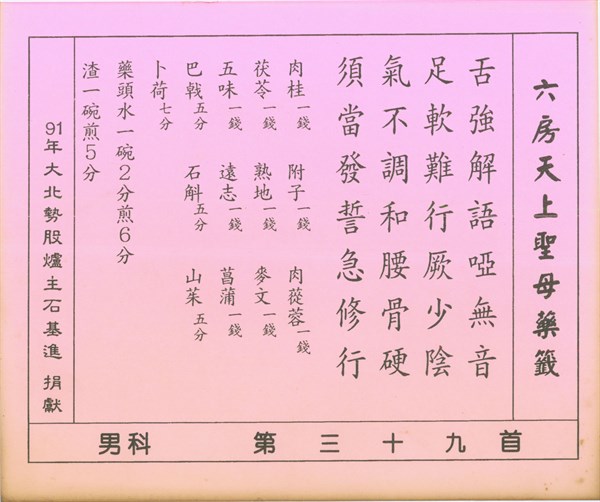 六房天上聖母藥籤
舌強解語啞無音
足軟難行厥少陰
氣不調和腰骨硬
須當發誓急修行
肉桂一錢 附子一錢 肉蓯蓉一錢
茯苓一錢 熟地一錢 麥文一錢
五味一錢 遠志一錢 菖蒲一錢
巴戟五分 石斛五分 山茱五分
卜荷七分
藥頭水一碗2分煎6分
渣一碗煎5分
91年大北勢股爐主石基進 捐獻
男科 第三十九首